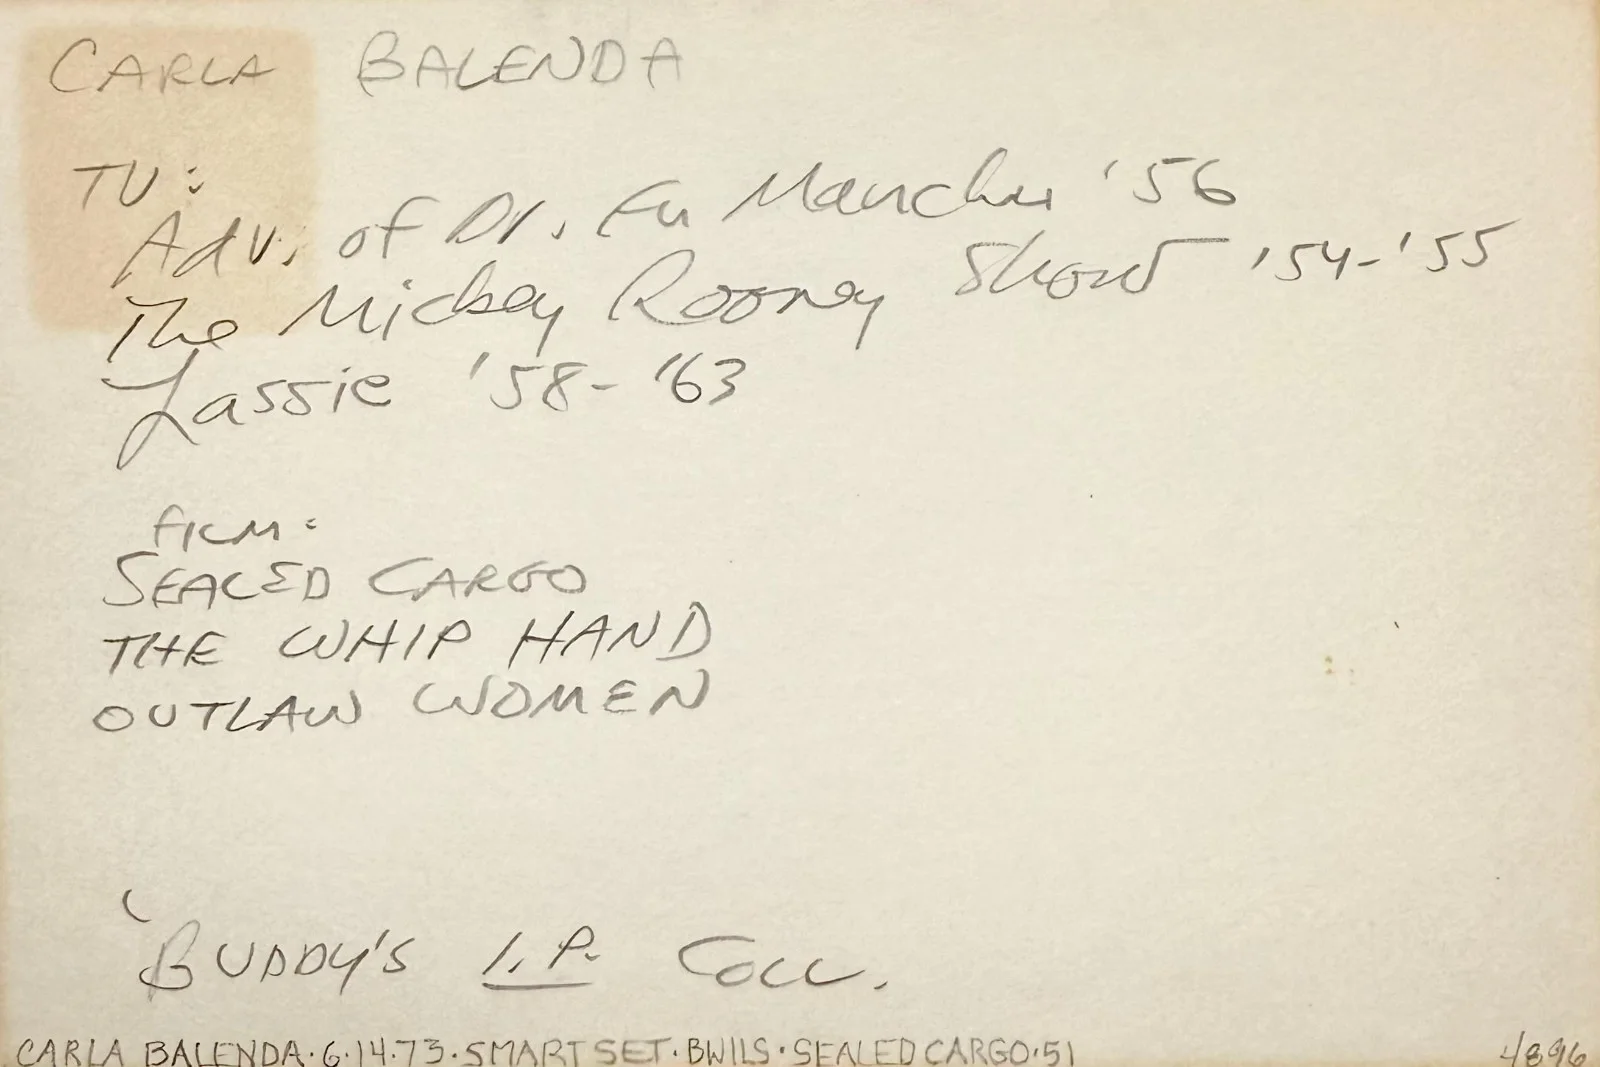 CARLA BALENDA
TV:
Adv. of Dr. Fu Manchu '56
The Mickey Rooney Show '54-'55
Lassie '58-'63
FILM:
SEALED CARGO
THE WHIP HAND
OUTLAW WOMEN
BUDDY'S I.P. COLL.
CARLA BALENDA·6·14·73·SMART SET·BWILS·SEALED CARGO·51
4896